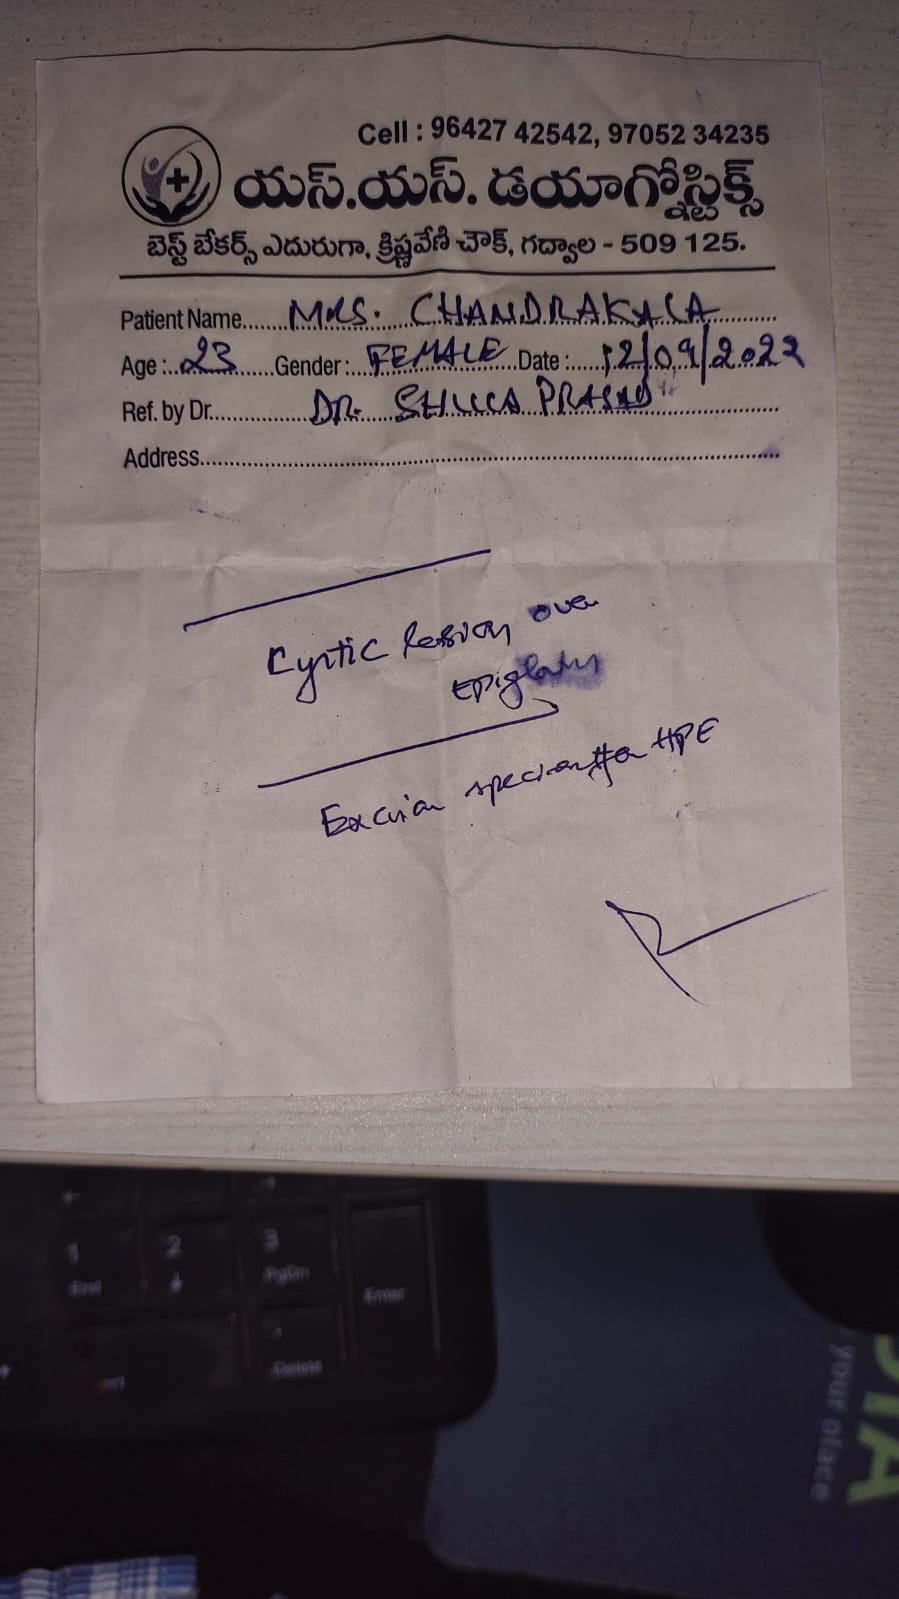 Cell : 96427 42542, 97052 34235
యస్.యస్. డయాగ్నోస్టిక్స్
బెస్ట్ బేకర్స్ ఎదురుగా, క్రిష్ణవేణి చౌక్, గద్వాల - 509 125.
Patient Name...... MRS. CHANDRAKALA
Age :.. 23 ......Gender : FEMALE Date :..... 12/09/2022
Ref. by Dr.......... DR. PRASAD
Address....................
Cystic lesion over
Excision HPE
1 2 3
End ↓ PgDn
Enter
Delete
your place